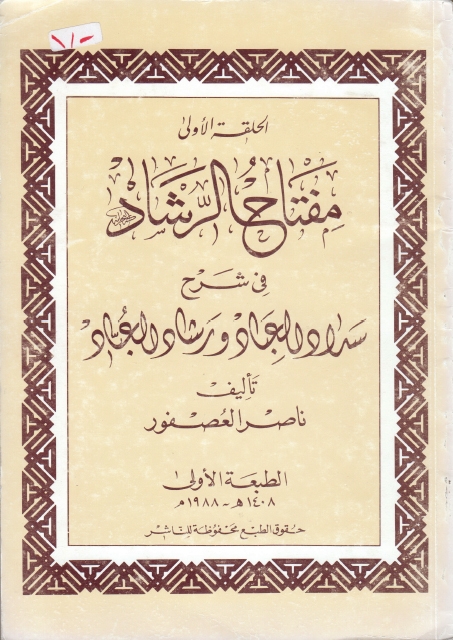 ١/-
الحلقة الأولى
مِفتاحُ الرّشاد
في شَرح
سَداد العِباد ورشاد العُبّاد
تأليف
ناصر العصفور
الطبعة الأولى
١٤٠٨ هـ - ١٩٨٨ م
حقوق الطبع محفوظة للناشر